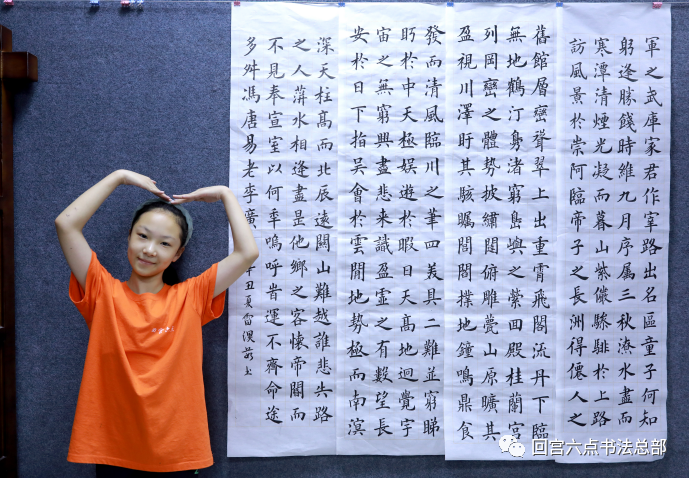 軍之武庫家君作宰路出名區童子何知
躬逢勝餞時維九月序属三秋潦水盡而
寒潭清煙光凝而暮山紫儼驂騑於上路
訪風景於崇阿臨帝子之長洲得僊人之
舊館層巒聳翠上出重霄飛閣流丹下臨
無地鶴汀鳧渚窮島嶼之縈回殿桂蘭宮
列岡巒之體勢披繡闥俯雕甍山原曠其
盈視川澤盱其駭矚閭閻撲地鐘鳴鼎食
發而清風臨川之筆四美具二難並窮睇
眄於中天極娱遊於暇日天髙地迥覺宇
宙之無窮興盡悲来識盈虛之有數望長
安於日下指吴會於雲間地勢極而南溟
深天柱髙而北辰遠關山難越誰悲失路
之人萍水相逢盡是他鄉之客懷帝閽而
不見奉宣室以何年嗚呼旹運不齊命途
多舛馮唐易老李廣
辛丑夏雷淏
回宫六点书法总部